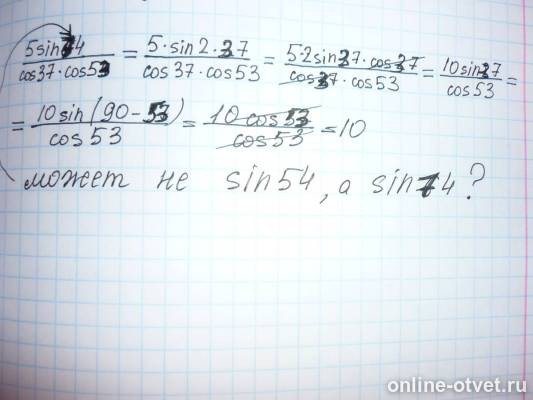 5sin74/cos37·cos53 = 5·sin2·37/cos37·cos53 = 5·2sin37·cos37/cos37·cos53 = 10sin37/cos53 =
= 10sin(90-53)/cos53 = 10cos53/cos53 = 10
может не sin54, а sin74?
online-otvet.ru